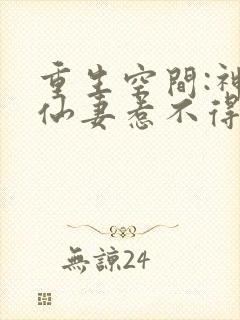 重生空間:神
仙妻惹不得
無諒24